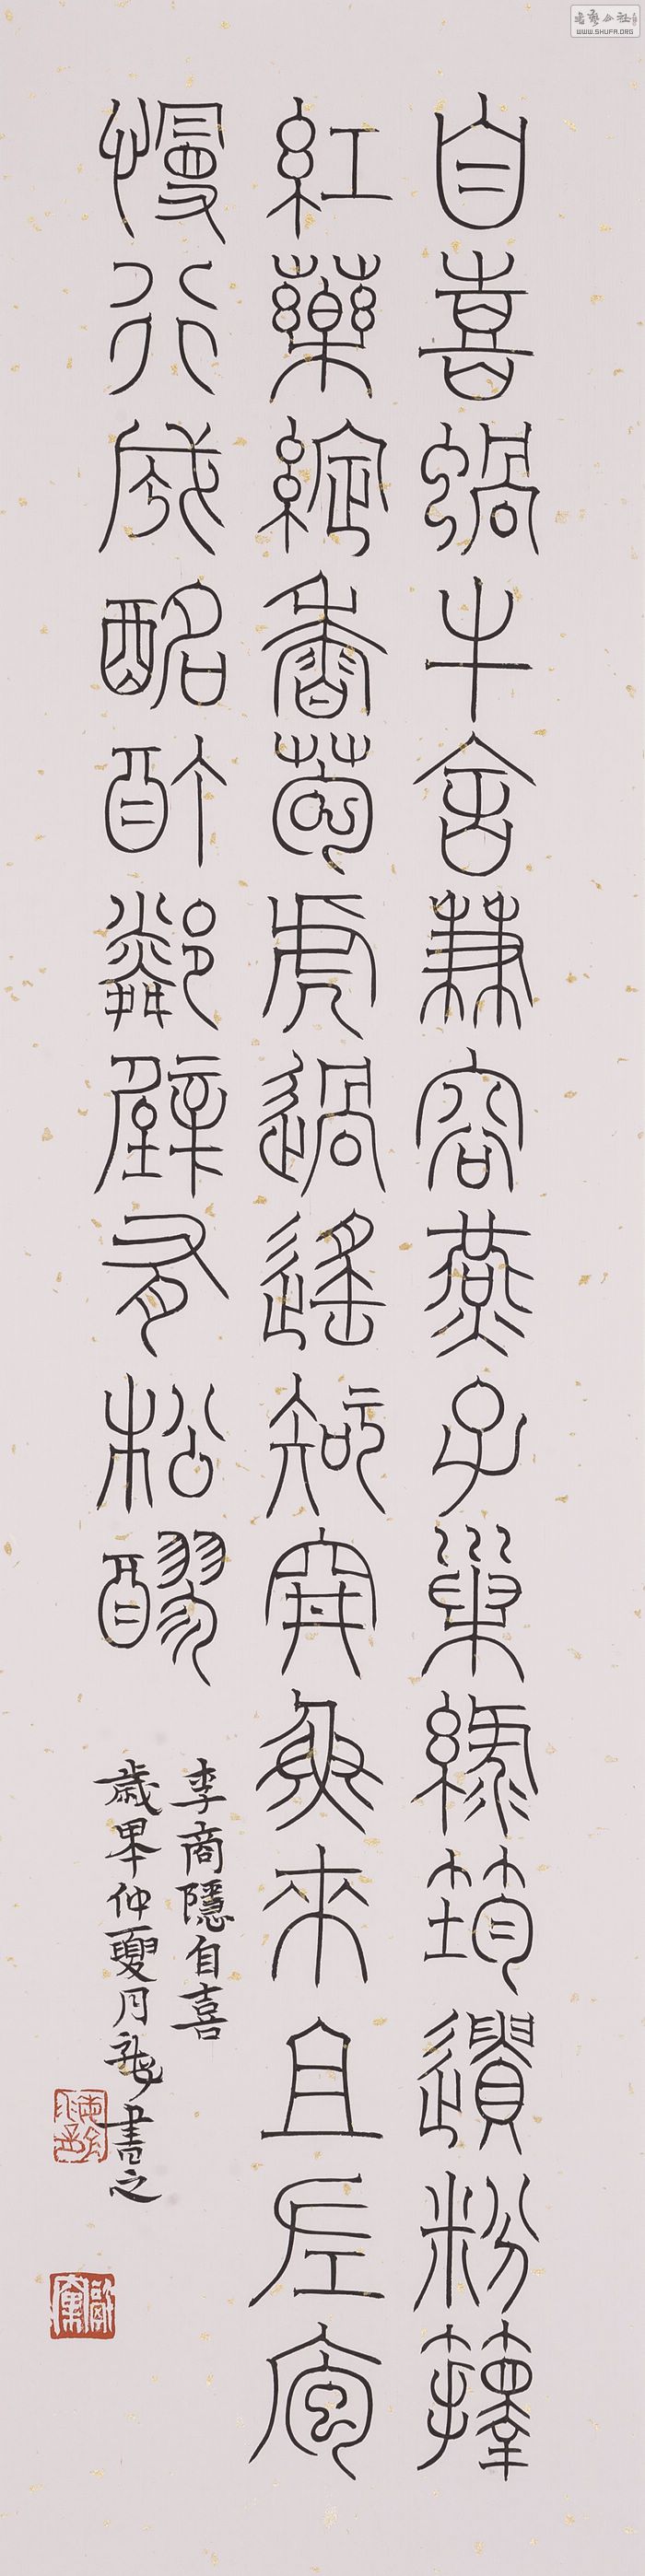 自喜蝸牛舍兼容燕子巢綠筠遺粉籜
紅藥綻香苞虎過遙知穽魚來且左庖
慢行成酩酊鄰壁有松醪
李商隱自喜
歲仲夏月書之
书艺公社
WWW.SHUFA.ORG